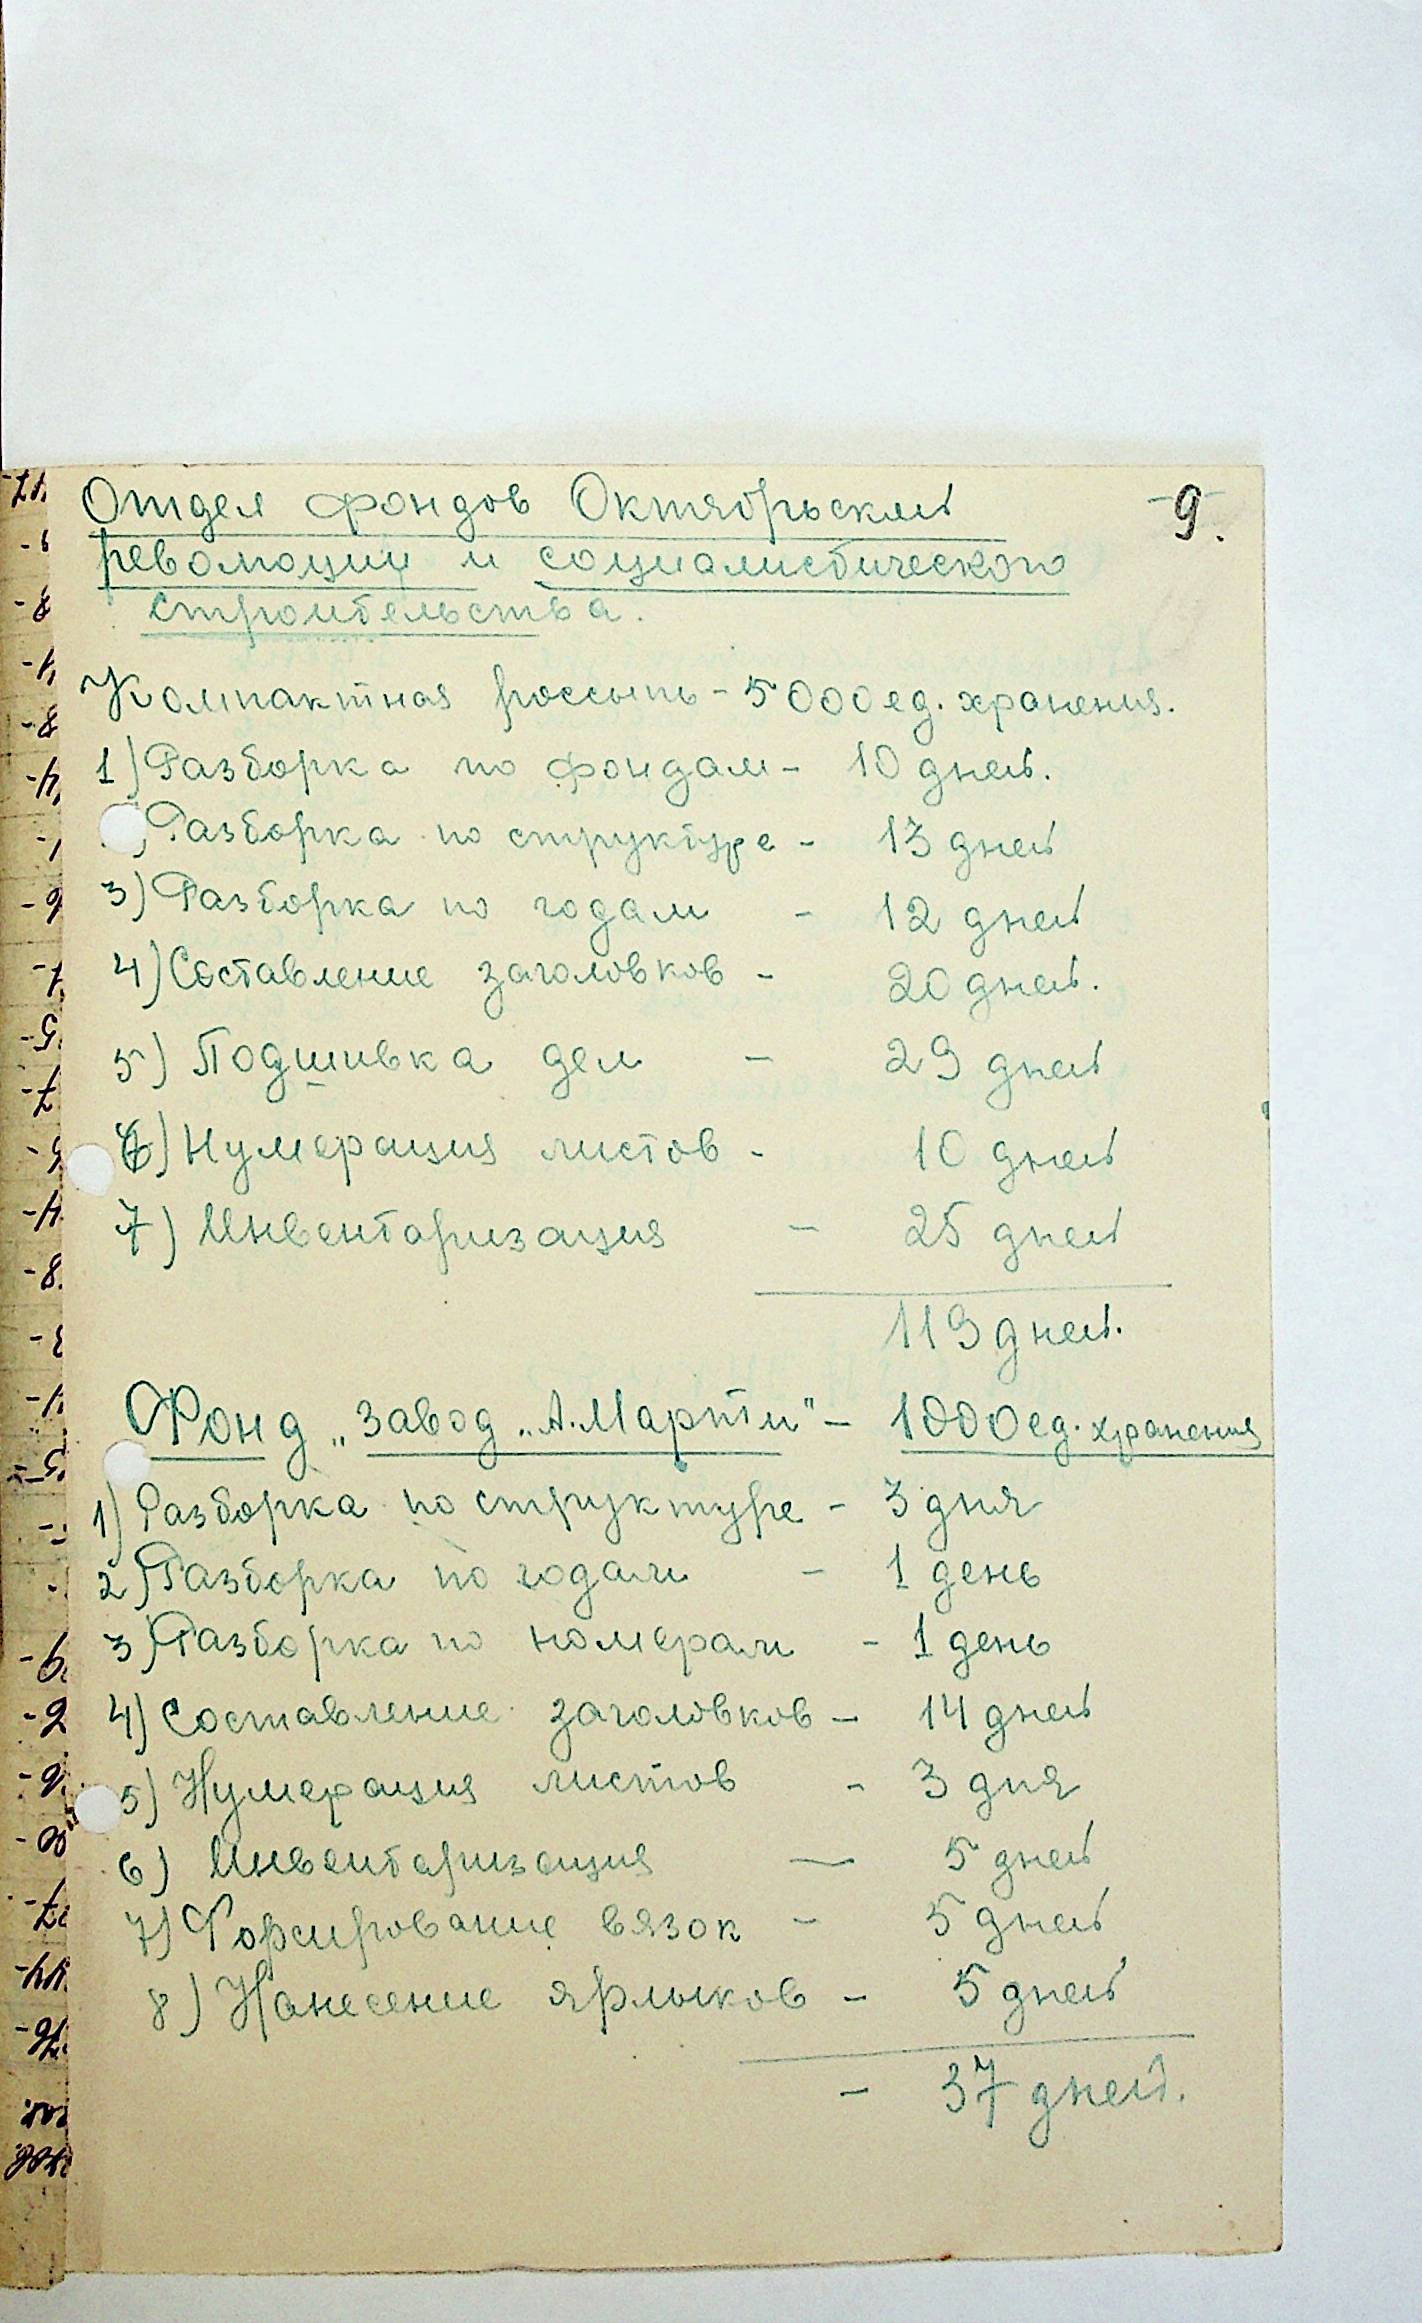 Отдел фондов Октябрьской
9.
революции и социалистического
строительства.
Компактная россыпь - 5000 ед. хранения.
1) Разборка по фондам - 10 дней.
) Разборка по структуре - 13 дней
3) Разборка по годам - 12 дней
4) Составление заголовков - 20 дней.
5) Подшивка дел - 29 дней
6) Нумерация листов - 10 дней
7) Инвентаризация - 25 дней
119 дней.
Фонд „Завод „А. Марти" - 1000 ед. хранения
1) Разборка по структуре - 3 дня
2) Разборка по годам - 1 день
3) Разборка по номерам - 1 день
4) Составление заголовков - 14 дней
5) Нумерация листов - 3 дня
6) Инвентаризация - 5 дней
7) Формирование вязок - 5 дней
8) Нанесение ярлыков - 5 дней
- 37 дней.